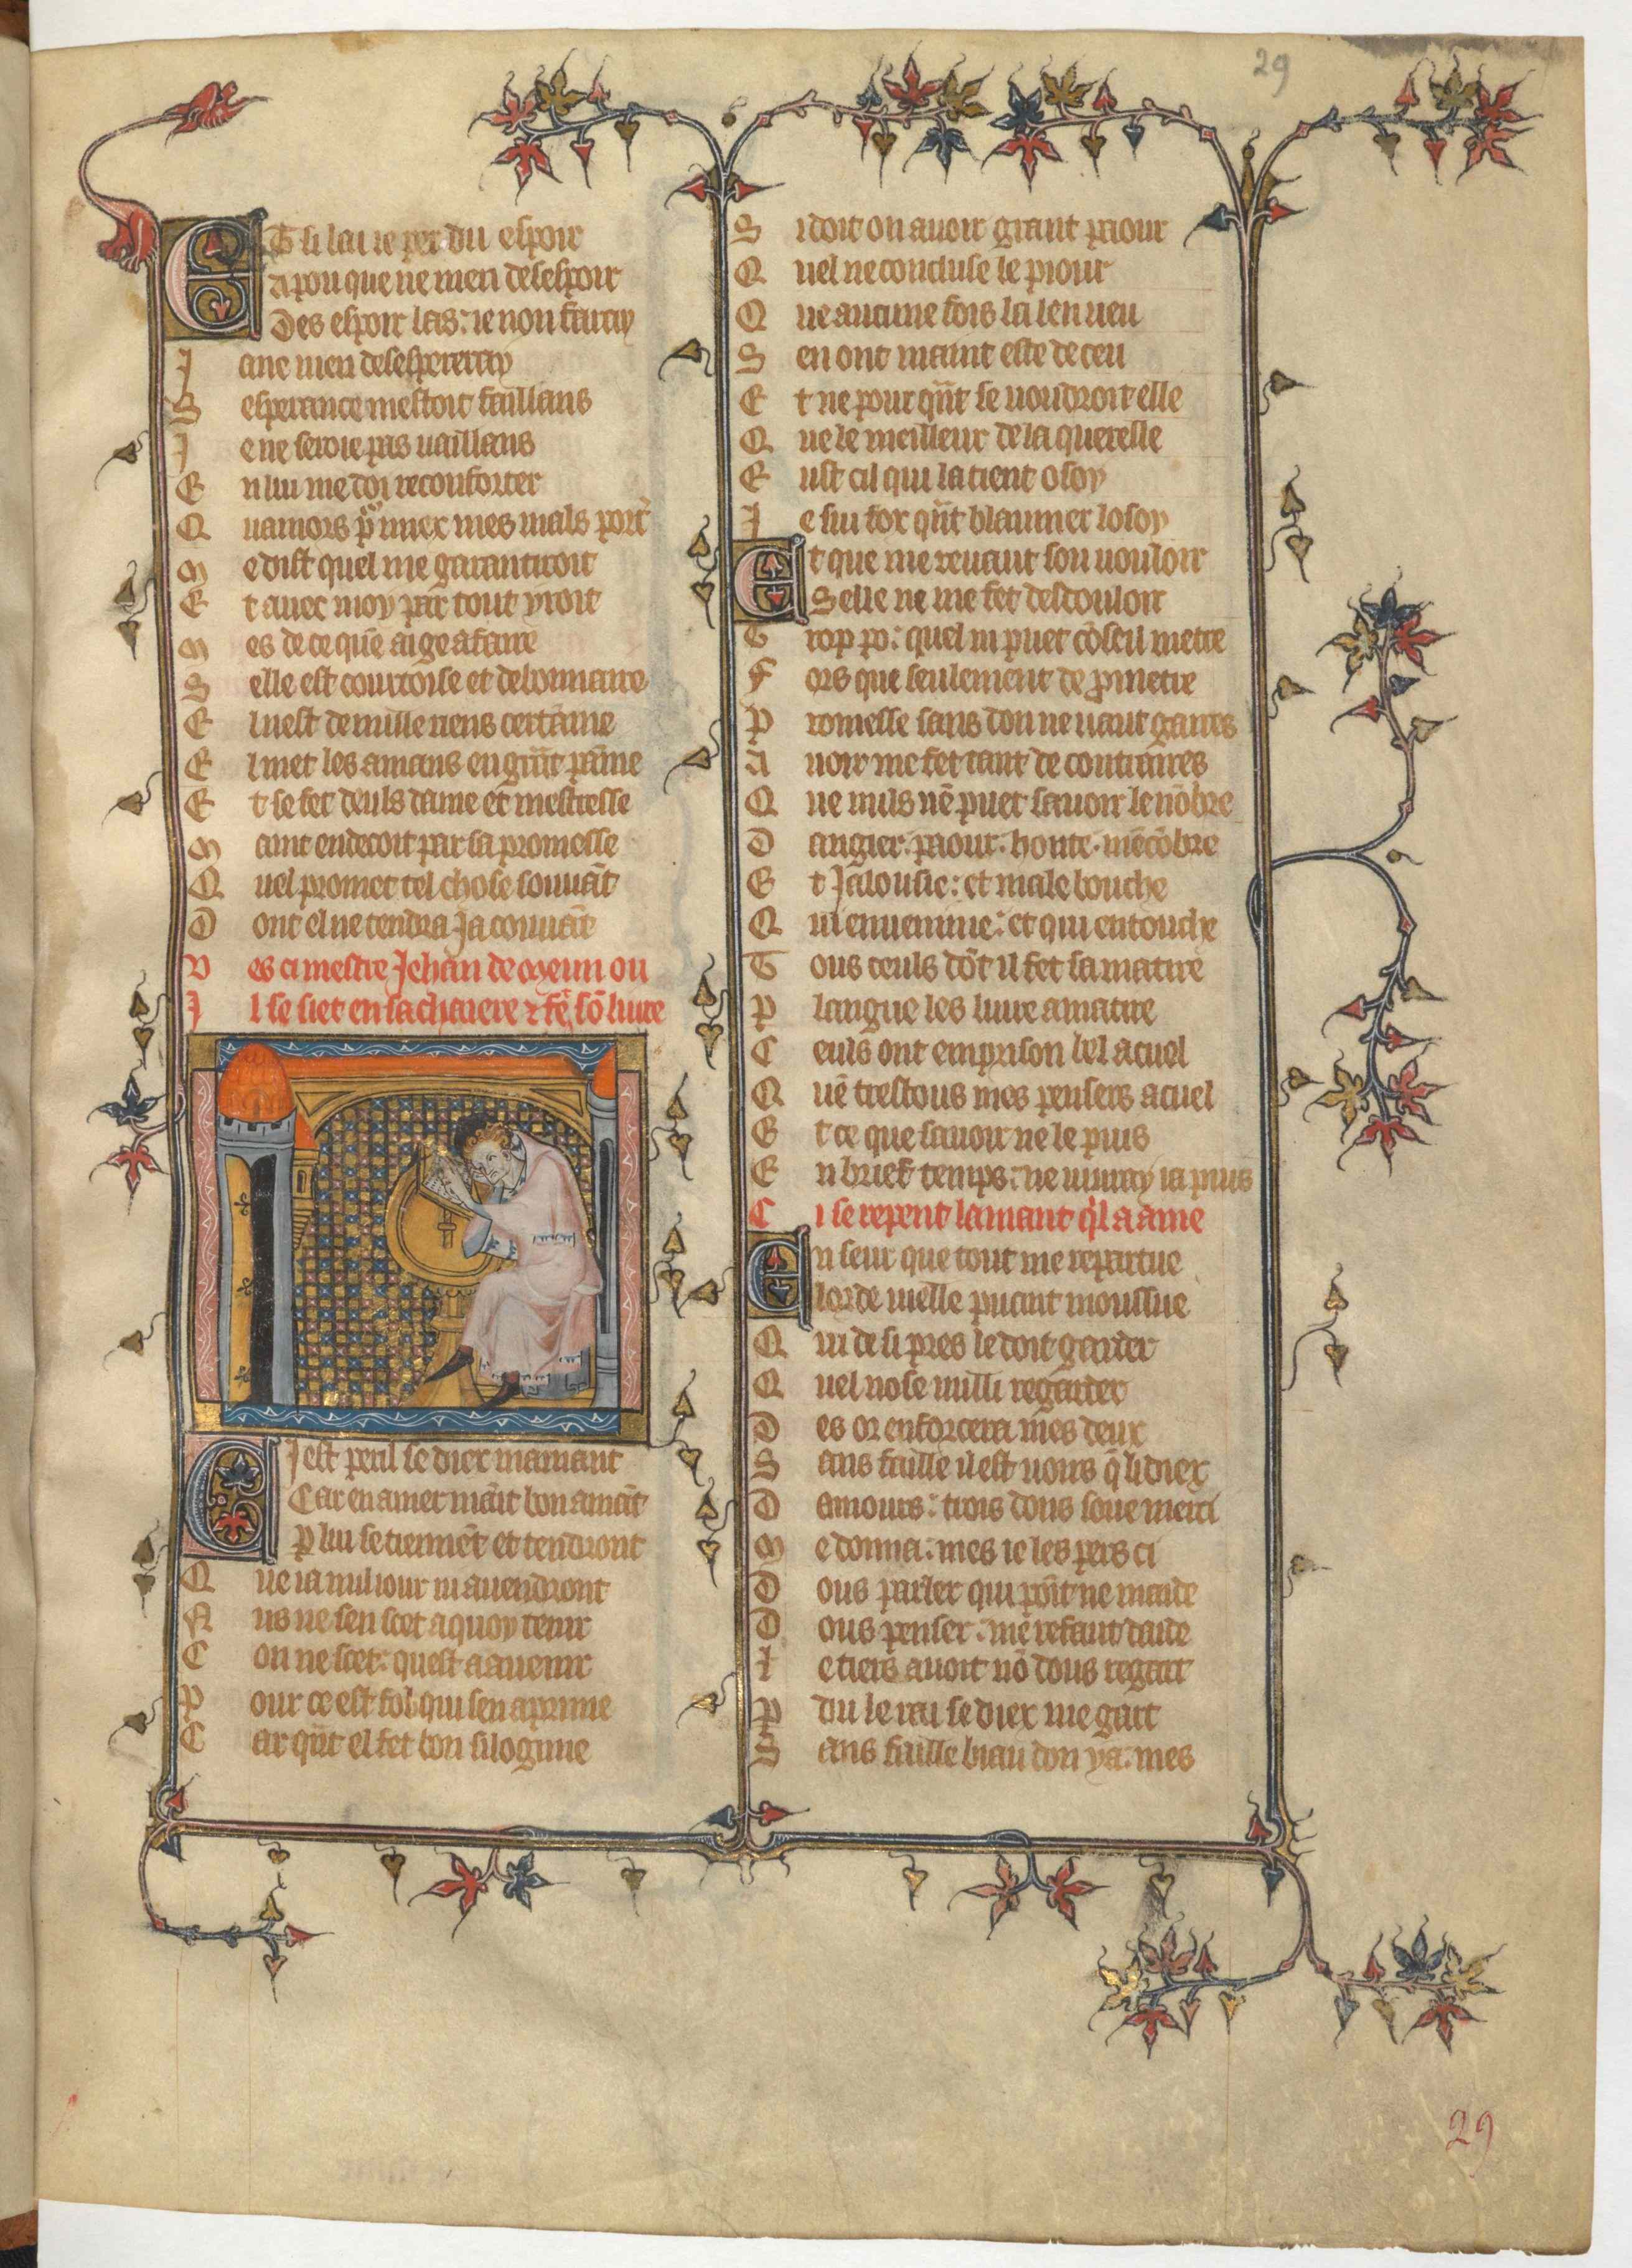 29
Et si lai ie perdu espoir
A pou que ne men desespoir
Des espoir las: ie non feray
Ia ne men desespereray
S esperance mestoit faillans
Ie ne seroie pas vaillans
En lui me doi reconforter
Quamors pour miex mes mals port̾
Me dist quel me garantiroit
Et auec moy par tout yroit
Mes de ce que ai ge a faire
S elle est courtoise et debonnaire
El nest de nulle riens certaine
El met les amans en gr̄nt paine
Et se fet deuls dame et mestresse
Maint en decoit par sa promesse
Quel promet tel chose souuāt
Dont el ne tendra Ja conuāt
Ves ci mestre Jehan de Meun ou
Il se siet en sa chaiere ⁊ fē sō liure
C i est peril se diex mamant
Car en amer maīt bon amāt
P lui se tiennēt et tendront
Que ia nul iour ni auendront
Nus ne sen scet a quoy tenir
Con ne scet: quest a auenir
Pour ce est fol qui sen aprime
Car qn̄t el fet bon silogime
Si doit on auoir grant paour
Quel ne concluse le piour
Que aucune fois la len ueu
Sen ont maint este deceu
Et ne pour qn̄t se uoudroit elle
Que le meilleur de la querelle
Eust cil qui la tient o soy
Ie sui fox qn̄t blasmer losoy
Et que me reuaut son uouloir
Selle ne me fet desdouloir
Trop po: quel ni puet cōseil metre
Fors que seulement de ꝓmetre
Promesse sans don ne uaut gaires
Auoir me fet tant de contraires
Que nuls nē puet sauoir le nōbre
Dangier. paour. honte. mēcōbre
Et Jalousie: et male bouche
Qui enuenime: et qui entouche
Tous ceuls dōt il fet sa matire
P langue les liure a matire
Ceuls ont em prison bel acuel
Quē trestous mes pensers acuel
Et ce que sauoir ne le puis
En brief temps: ne uiuray ia puis
Ci se repent lamant q̄l a ame
En seur que tout me repartue
Lorde uielle puant moussue
Qui de si pres le doit garder
Quel nose nulli regarder
Des or enforcera mes deux
Sans faille il est uoirs q̄ li diex
Damours: trois dons soue merci
Me donna: mes ie les pers ci
Dous parler qui poīt ne maide
Dous penser: me refaut daide
Le tiers auoit nō dous regart
Pdu le rai se diex me gart
Sans faille biau don y a: mes
29